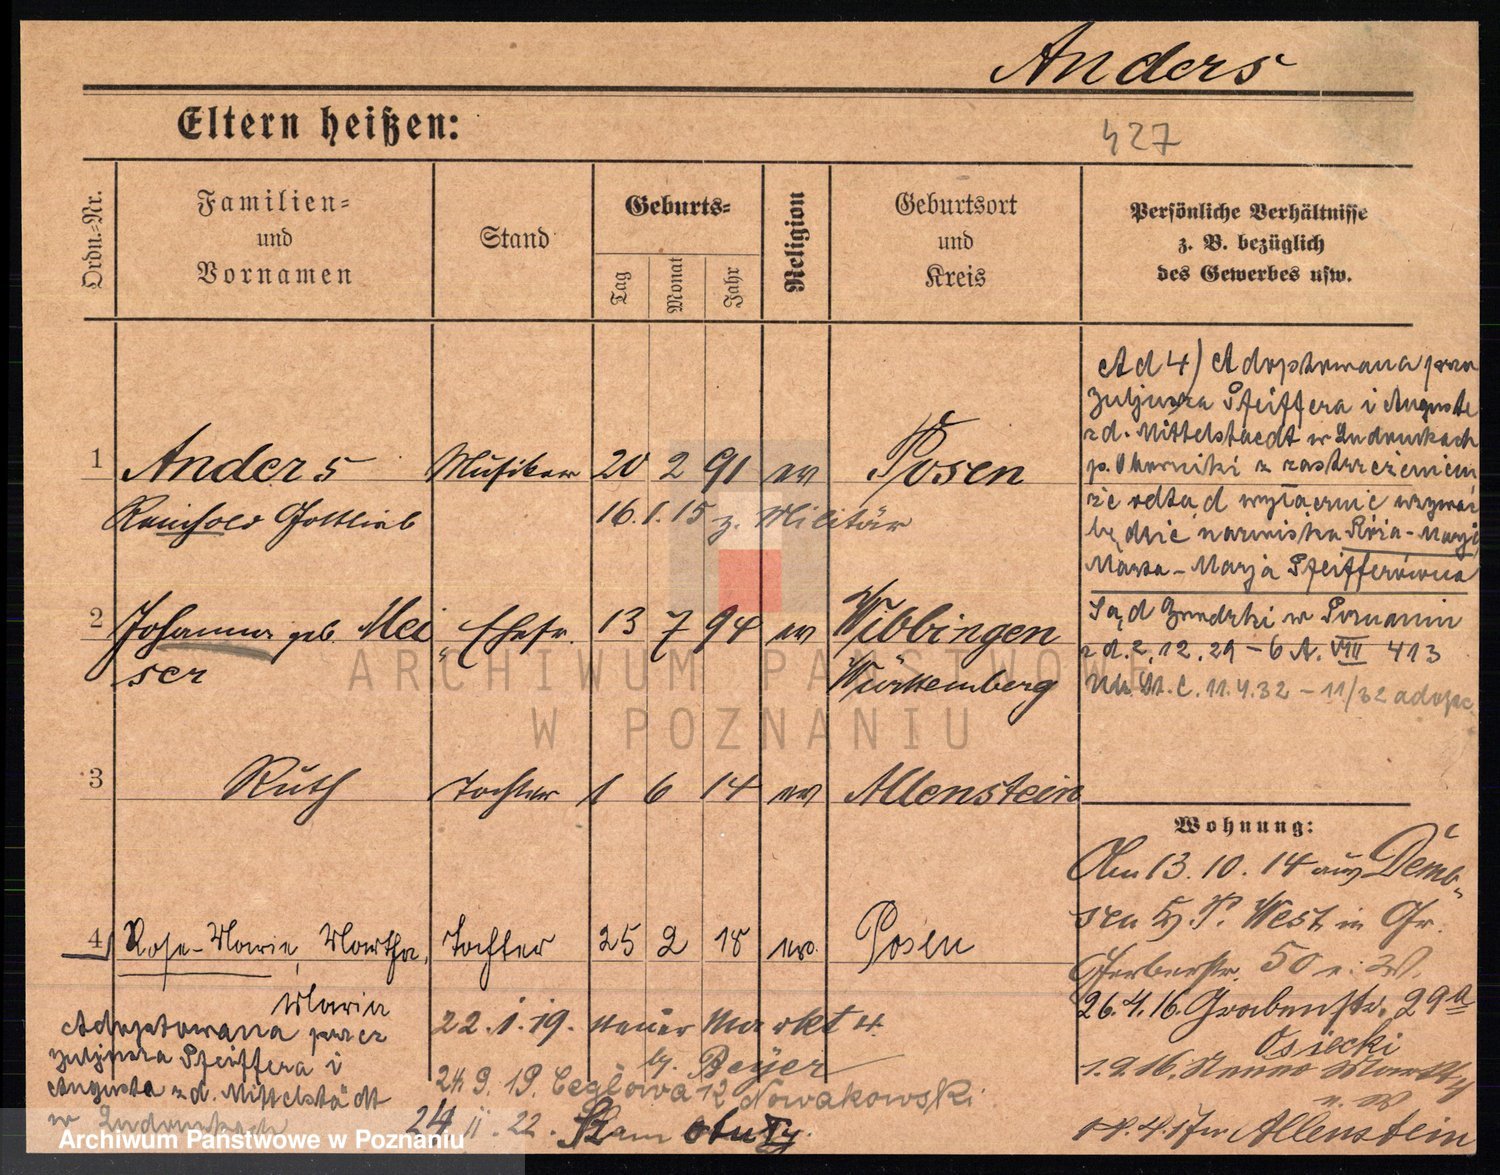 Anders
Eltern heißen:
427
Ordn.-Nr.
Familien-
und
Vornamen
Stand
Geburts-
Tag
Monat
Jahr
Religion
Geburtsort
und
Kreis
Persönliche Verhältnisse
z. B. bezüglich
des Gewerbes usw.
1 Anders Musiker 20 2 91 ev Posen
Reinhold Gottlieb 16.1.15 z. Militär
2 Johanna geb. Mei Ehefr. 13 7 94 ev Wibbingen
ser Württemberg
3 Ruth Tochter 1 6 14 ev Allenstein
4 Rose-Marie, Martha, Tochter 25 2 18 ev. Posen
Maria
Adoptowana przez
Juljusza Pfeiffera i
Augusta z d. Mittelstädt
w
22.1.19. Neuer Markt 4
b. Beyer
24.9.19. Ceglowa 12 Nowakowski
24 II 22.
Ad 4) Adoptowana przez
Juljusza Pfeiffera i Auguste
z d. Mittelstaedt w
p. Oborniki z zastrzeżeniem
że odtąd wyłącznie używać
będzie nazwiska Róża-Marja
Marta-Marja Pfeifferówna
Sąd Grodzki w Poznaniu
z d. 2.12.29 - 6 N. VIII 413
11.4.32 - 11/32
Wohnung:
Am 13.10.14 aus Demb-
sen Kr. P. West in Gr.
Gerberstr. 50 
26.4.16. Grabenstr. 29a
Osiecki
1.9.16. Neuer Markt
Allenstein
ARCHIWUM PAŃSTWOWE
W POZNANIU
Archiwum Państwowe w Poznaniu